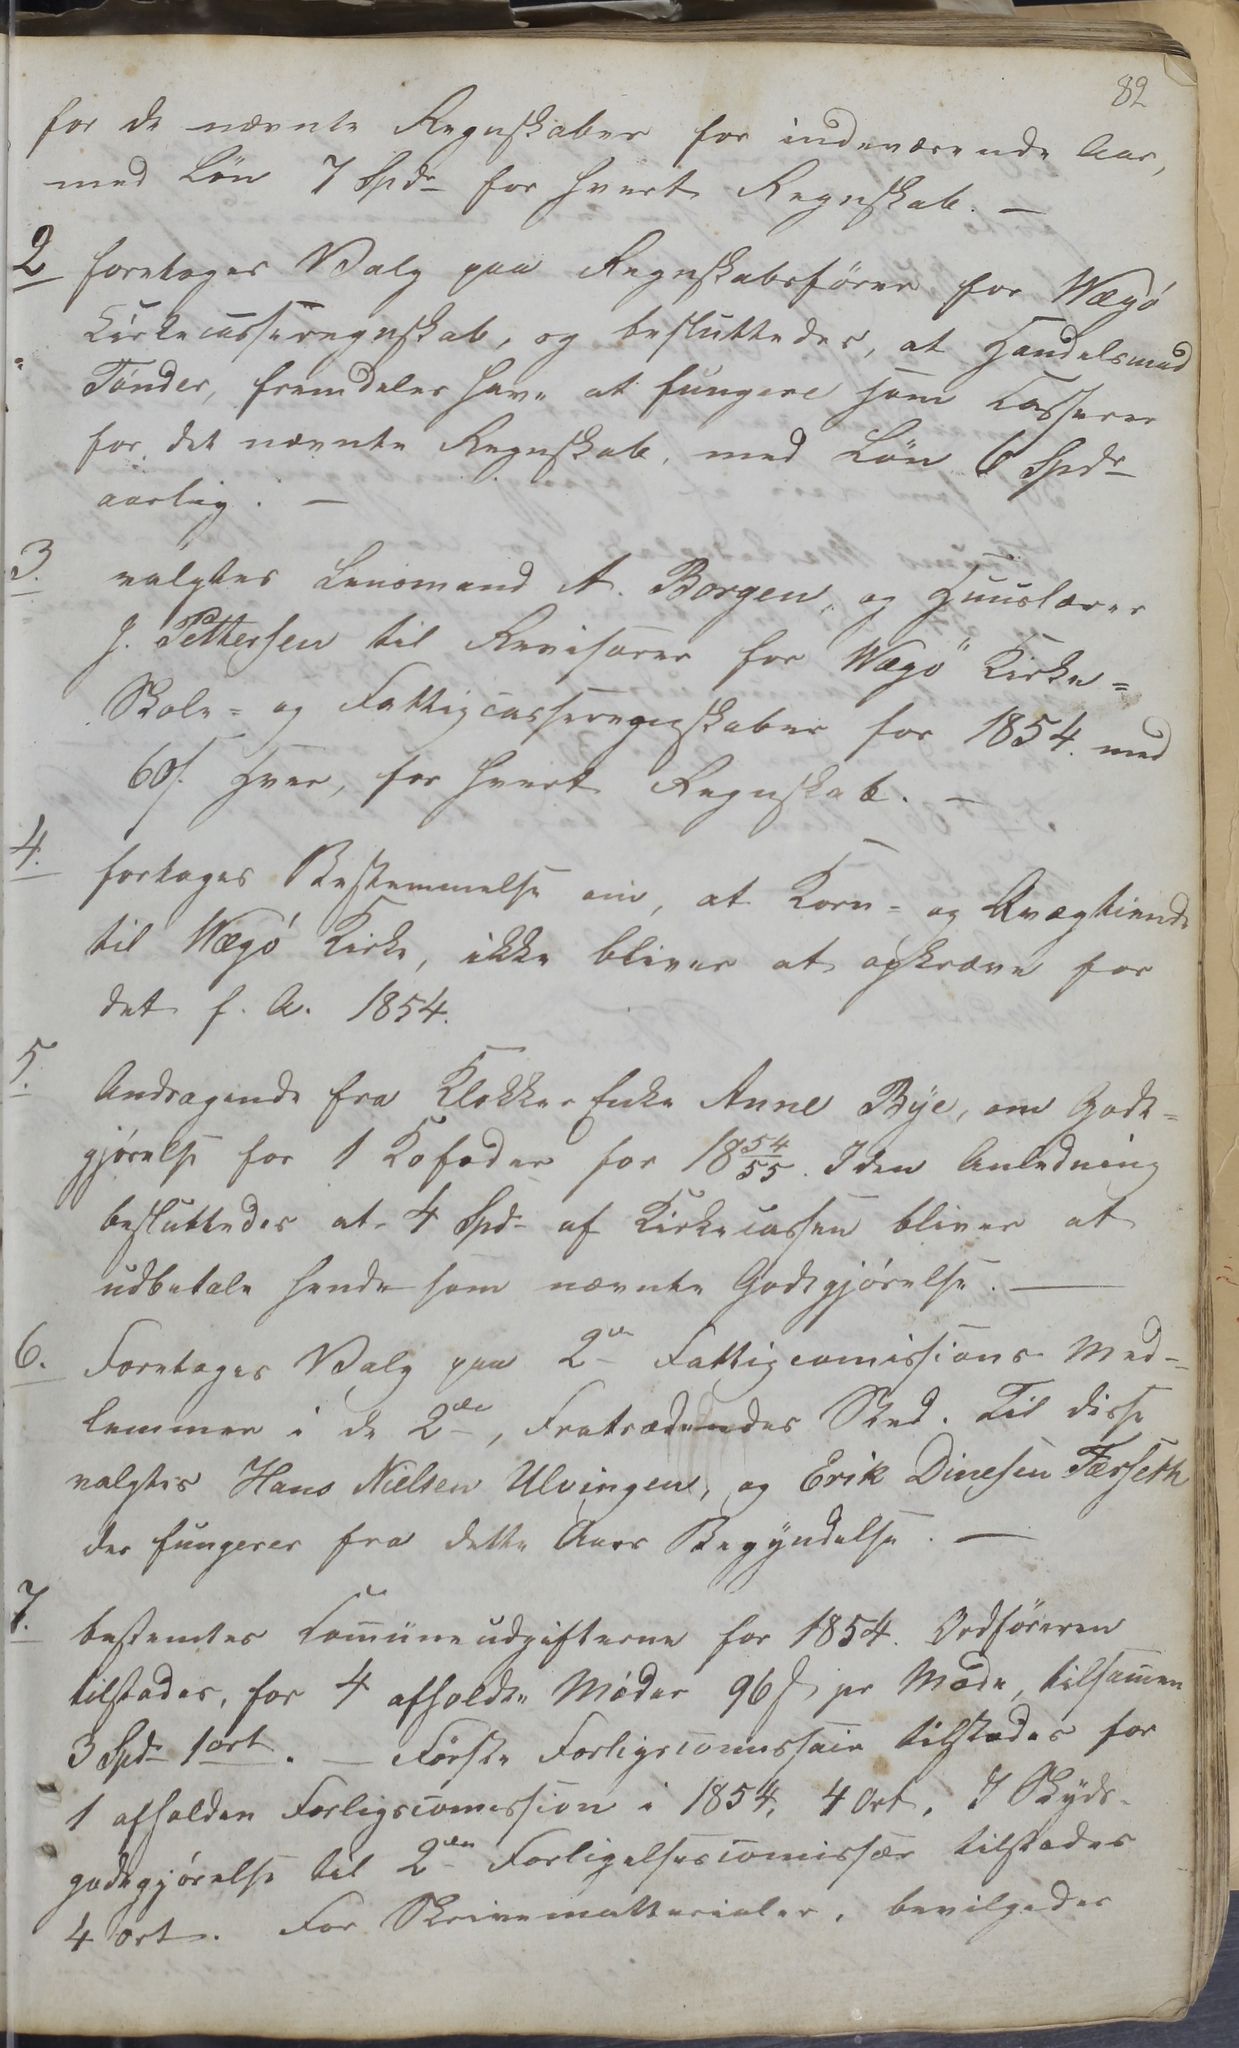 82
for de nævnte Regnskaber for indeværende Aar,
med Lön 7 Spd for hvert Regnskab. —
2 foretoges Valg paa Regnskabsförer for Wægö
Kirkecasseregnskab, og besluttedes, at Handelsmad
Tönder, fremdeles have at fungere som Casserer
for det nævnte Regnskab, med Lön 6 Spd
aarlig. —
3. valgtes Lensmand A. Borgen, og Huuslærer
J. Pettersen til Revisorer for Wægö Kirke=
Skole= og Fattigcasseregnskaber for 1854. med
60 s. Hver, for hvert Regnskab. —
4. fortoges Bestemmelse om, at Korn= og Qvægtiende
til Wægö Kirke, ikke bliver at opkræve for
det f. A. 1854.
5. Andragende fra Klokker Enke Anne Bÿe, om Godt=
gjörelse for 1 Kofoder for 18 54/55. I den Anledning
besluttedes at 4 Spd af Kirkecassen bliver at
udbetale hende som nævnte Godtgjörelse. —
6. Foretoges Valg paa 2de Fattigcomissions Med=
lemmer i de 2de, Fratrædendes Sted. Til disse
valgtes Hans Nielsen Ulvingen, og Erik Dinesen Færseth
der fungerer fra dette Aars Begÿndelse. —
7. bestemtes Comüneudgifterne for 1854. Ordföreren
tilstodes, for 4 afholdte Möder 96 s pr Möde, tilsamen
3 Spd 1 ort. — Förste Forligscomissair tilstodes for
1 afholden Forligscomission i 1854, 4 Ort. I Skÿds-
godtgjörelse til 2den Forligelsescomissær tilstodes
4 ort. For Skrivematterialer, bevilgedes